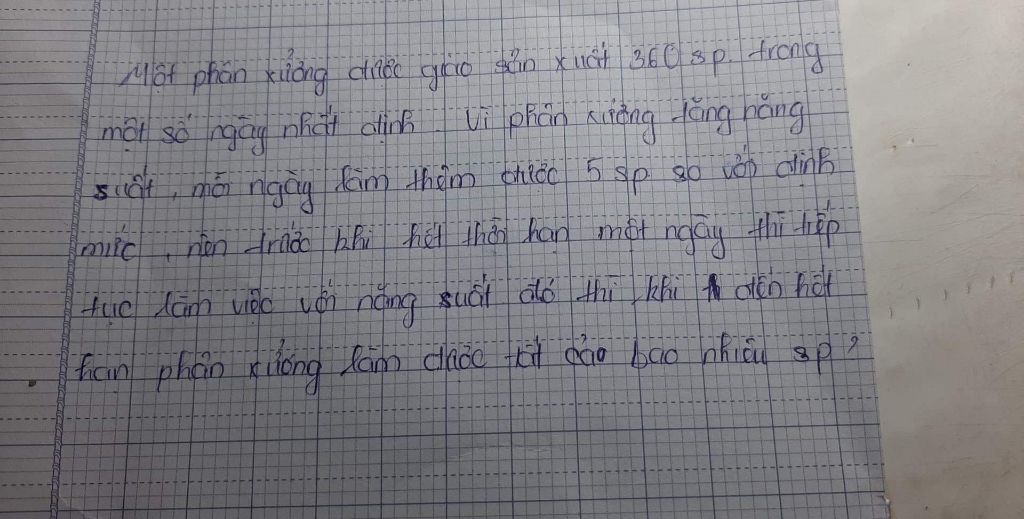 Một phân xưởng được giao sản xuất 360 sp trong
một số ngày nhất định. Vì phân xưởng tăng năng
suất, mỗi ngày làm thêm được 5 sp so với định
mức, nên trước khi hết thời hạn một ngày thì tiếp
tục làm việc với năng suất đó thì khi đến hết
hạn phân xưởng làm được tất cả bao nhiêu sp?